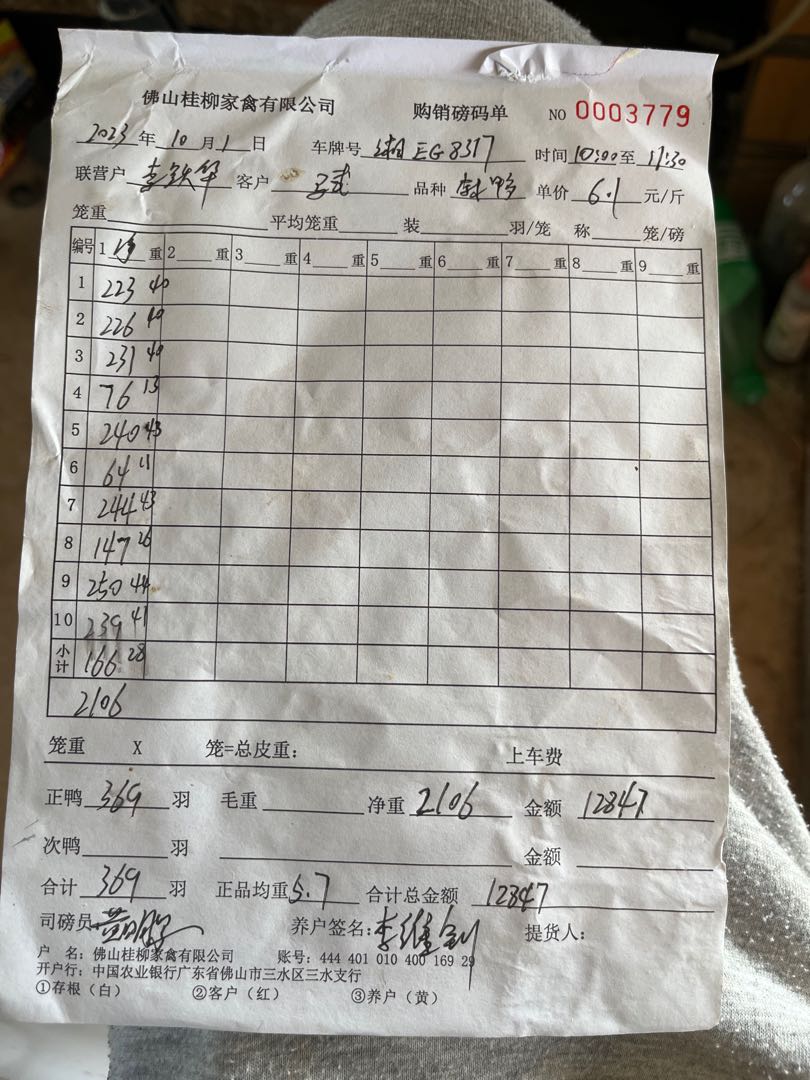 佛山桂柳家禽有限公司 购销磅码单 NO 0003779
2023年10月1日 车牌号 湘EG8317 时间 10:00至11:30
联营户 李铁华 客户 品种 单价 6.1 元/斤
笼重 平均笼重 装 羽/笼 称 笼/磅
编号 1 净 重 2 重 3 重 4 重 5 重 6 重 7 重 8 重 9 重
1 223 40
2 226 40
3 231 40
4 76 13
5 240 43
6 64 11
7 244 43
8 147 26
9 250 44
10 239 41
小计 166 28
2106
笼重 X 笼=总皮重: 上车费
正鸭 369 羽 毛重 净重 2106 金额 12847
次鸭 羽 金额
合计 369 羽 正品均重 5.7 合计总金额 12847
司磅员 养户签名: 提货人:
户 名: 佛山桂柳家禽有限公司 账号: 444 401 010 400 169 29
开户行: 中国农业银行广东省佛山市三水区三水支行
①存根（白） ②客户（红） ③养户（黄）